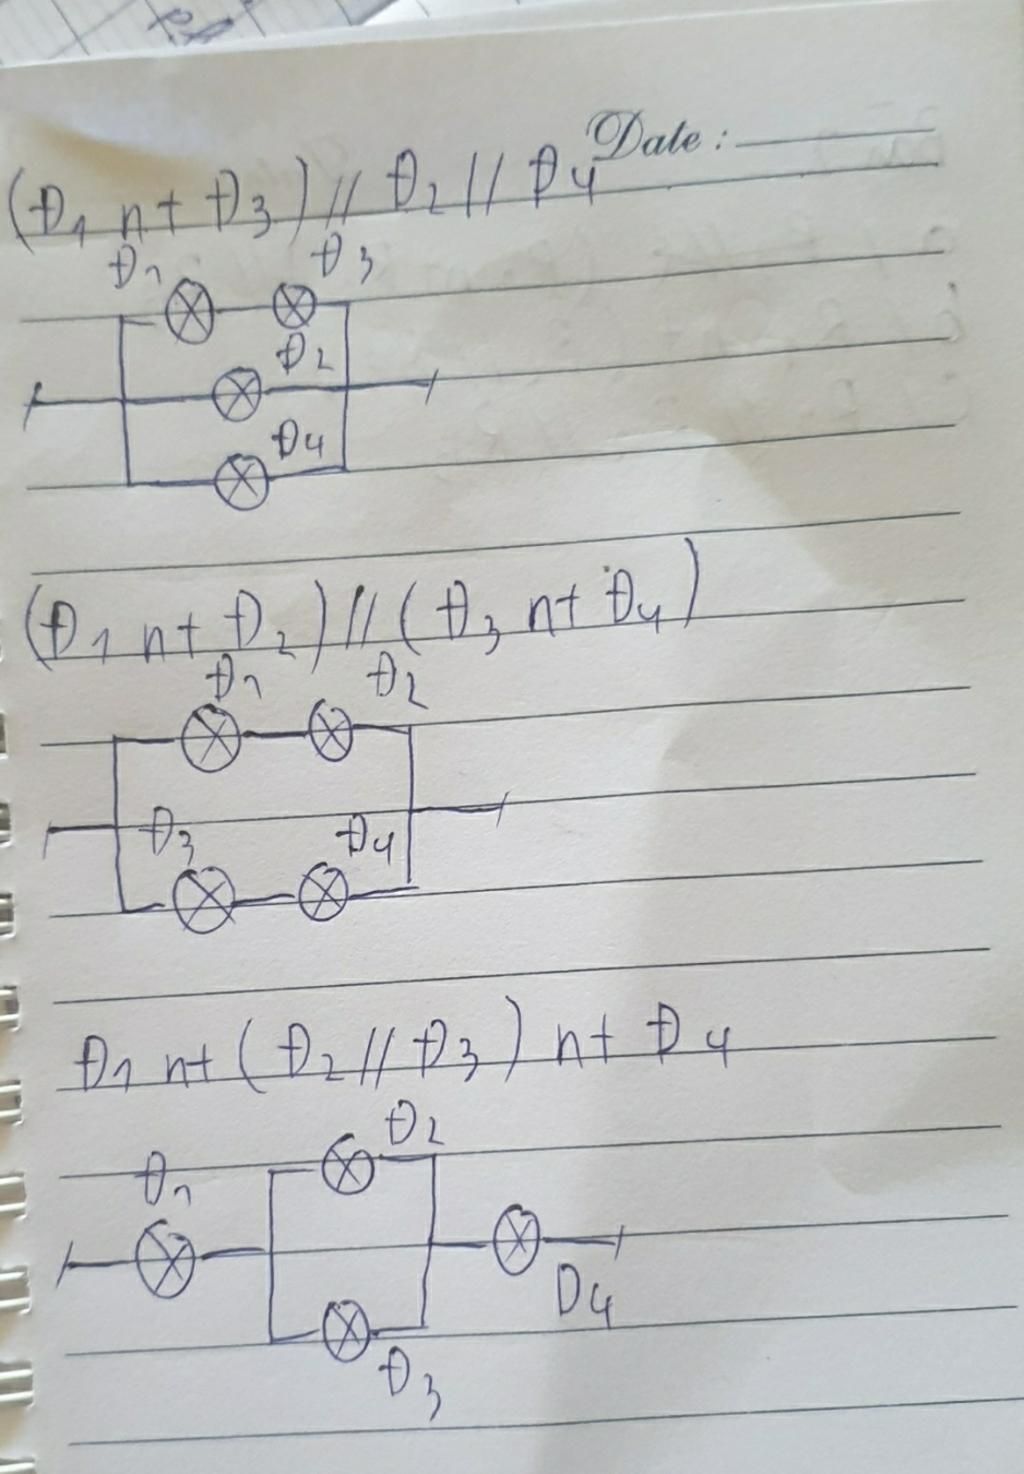 Date :
(Đ1 nt Đ3) // Đ2 // Đ4
Đ1 Đ3
Đ2
Đ4
(Đ1 nt Đ2) // (Đ3 nt Đ4)
Đ1 Đ2
Đ3 Đ4
Đ1 nt (Đ2 // Đ3) nt Đ4
Đ2
Đ1
D4
Đ3